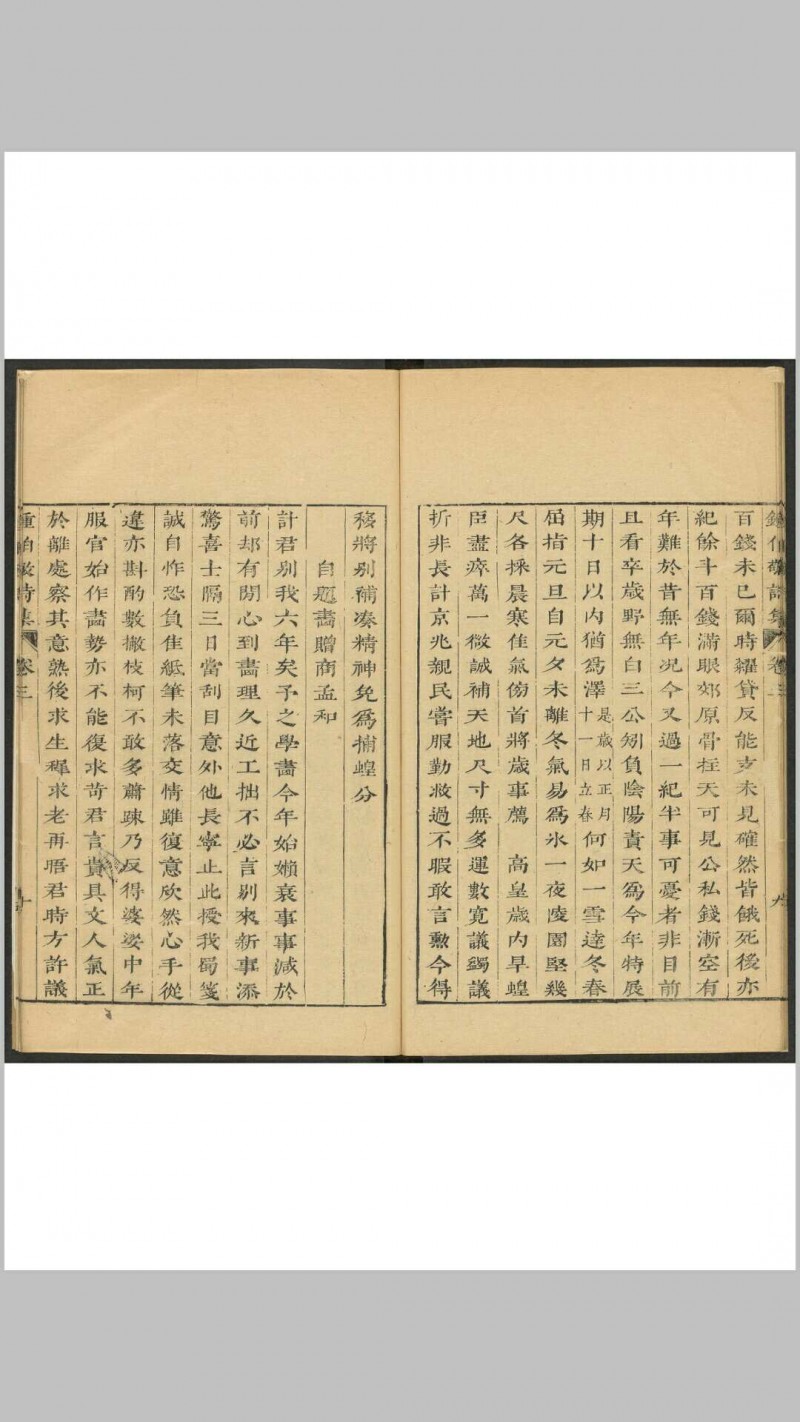 鍾伯敬詩集 卷三 九
百錢未已爾時羅貸反能支未見確然皆餓死後亦
紀餘斗百錢滿眼郊原骨拄天可見公私錢漸空有
年難於昔無年况今又過一紀半事可憂者非目前
且看卒歲野無白三公矧負陰陽責天爲今年特展
期十日以内猶爲澤是歲以正月十一日立春何如一雪逹冬春
屈指元旦自元夕未離冬氣易爲氷一夜凌園堅幾
尺各採晨寒佳氣傍首將歲事薦 高皇歲内旱蝗
臣盡瘁萬一微誠補天地尺寸無多運數寛議蠲議
折非長計京兆親民嘗服勤救過不暇敢言勲今得
移將别補凑精神免爲捕蝗分
自題畵贈商孟和
計君别我六年矣予之學畵今年始嬾衰事事減於
前却有閒心到畵理久近工拙不必言别來新事添
驚喜士隔三日當刮目意外他長寧止此授我蜀箋
誠自怍恐負佳紙筆未落交情雖復意欣然心手從
違亦斟酌數撇枝柯不敢多蕭踈乃反得婆娑中年
服官始作畵勢亦不能復求苛君言貴具文人氣正
於離處察其意熟後求生穉求老再晤君時方許議
鍾伯敬詩集 卷三 十